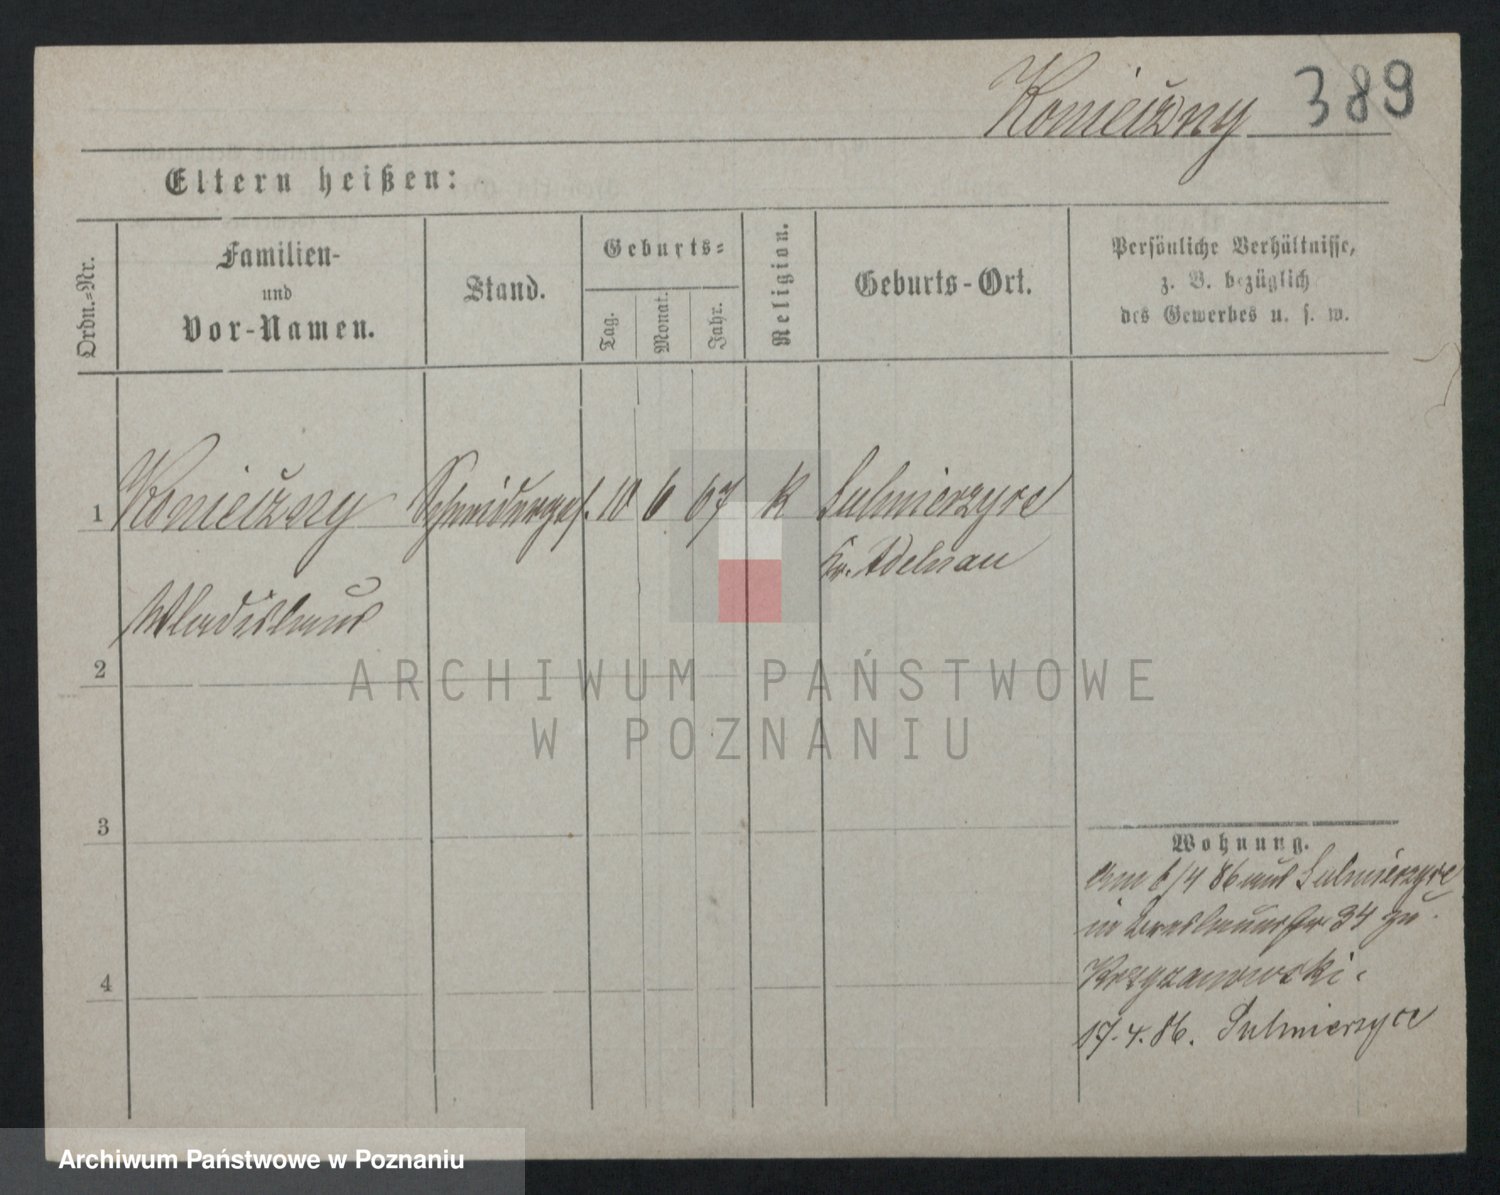 Konieczny 389
Eltern heißen:
Ordn.=Nr. Familien- und Vor-Namen. Stand. Geburts= Tag. Monat. Jahr. Religion. Geburts-Ort. Persönliche Verhältnisse, z. B. bezüglich des Gewerbes u. s. w.
1 Konieczny Schneiderges. 10 6 67 k Sulmierzyce
Kr. Adelnau
Wladislaus
2
ARCHIWUM PAŃSTWOWE
W POZNANIU
3
Wohnung.
Am 6/4 86 aus Sulmierzyce
in Breslauerstr 34 zu
Krzyzanowski.
4
17.4.86. Sulmierzyce
Archiwum Państwowe w Poznaniu